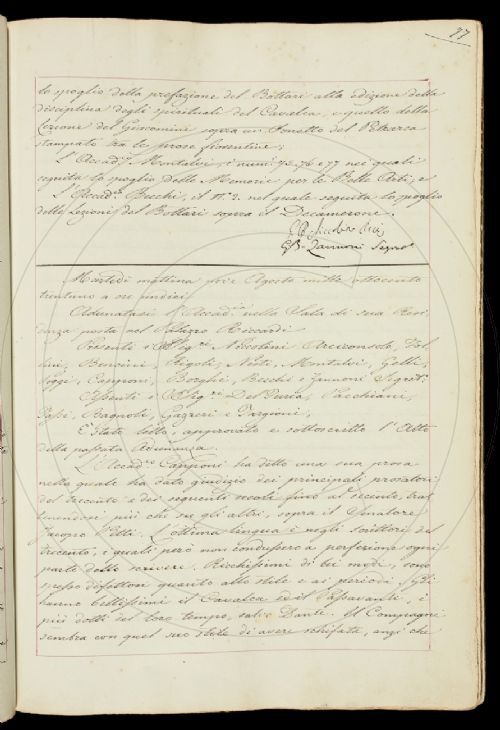 77
lo spoglio della prefazione del Bottari alla edizione della
disciplina degli spirituali del Cavalca, e quello della
Lezione del Giacomini sopra un Sonetto del Petrarca
stampato tra le prose fiorentine;
L'Accad. Montalvi, i numi 75. 76 e 77 nei quali
seguita lo spoglio delle Memorie per le Belle Arti; e
L'Accad. Becchi, il N. 3. nel quale seguita lo spoglio
delle Lezioni del Bottari sopra il Decamerone.
G. B. Zannoni Segret.
Martedì mattina Agosto mille ottocento
trentuno a ore undici
Adunatasi l'Accad. nella Sala di sua Resi
denza posta nel Palazzo Riccardi
Presenti i Sig. Niccolini Arciconsolo, Col
lini, Bencini, Rigoli, Nesti, Montalvi, Gelli,
Poggi, Capponi, Borghi, Becchi e Zannoni Segret.
Assenti i Sig. Del Furia, Pacchiani,
Bagnoli, Gazzeri e Targioni,
È stato letto, approvato e sottoscritto l'Atto
della passata Adunanza.
L'Accad. Capponi ha detto una sua prosa
nella quale ha dato giudizio dei principali prosatori
del trecento e dei seguenti secoli fino al secento, trat
tenendosi più che su gli altri, sopra il Senatore
Jacopo Pitti. L'ottima lingua è negli scrittori del
trecento, i quali però non condussero a perfezione ogni
parte dello scrivere. Ricchissimi di bei modi, sono
spesso difettosi quanto allo stile e ai periodi. Gli
hanno bellissimi il Cavalca ed il Passavanti, i
più dotti del loro tempo, salvo Dante. Il Compagni
sembra con quel suo stile di avere schifata, anzi che